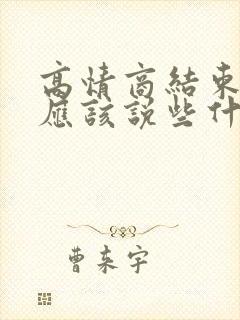 高情商結束
應該說些什
曹来宇